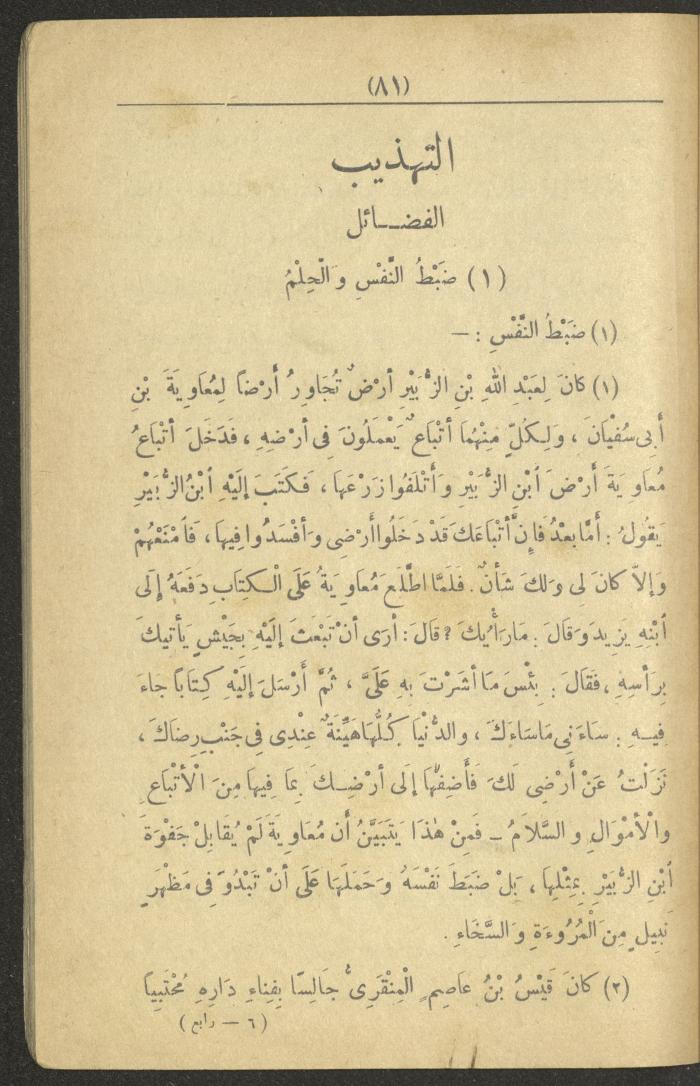 (٨١)
التهذيب
الفضائل
(١) ضَبْطُ النَّفْسِ وَالْحِلْمُ
(١) ضَبْطُ النَّفْسِ : —
(١) كَانَ لِعَبْدِ اللهِ بْنِ الزُّبَيْرِ أَرْضٌ تُجَاوِرُ أَرْضًا لِمُعَاوِيَةَ بْنِ
أَبِى سُفْيَانَ ، وَلِكُلٍّ مِنْهُمَا أَتْبَاعٌ يَعْمَلُونَ فِى أَرْضِهِ ، فَدَخَلَ أَتْبَاعُ
مُعَاوِيَةَ أَرْضَ ابْنِ الزُّبَيْرِ وَأَتْلَفُوا زَرْعَهَا ، فَكَتَبَ إِلَيْهِ ابْنُ الزُّبَيْرِ
يَقُولُ : أَمَّا بَعْدُ فَإِنَّ أَتْبَاعَكَ قَدْ دَخَلُوا أَرْضِى وَأَفْسَدُوا فِيهَا ، فَامْنَعْهُمْ
وَإِلاَّ كَانَ لِى وَلَكَ شَأْنٌ . فَلَمَّا اطَّلَعَ مُعَاوِيَةُ عَلَى الْكِتَابِ دَفَعَهُ إِلَى
ابْنِهِ يَزِيدَ وَقَالَ : مَا رَأْيُكَ ؟ قَالَ : أَرَى أَنْ تَبْعَثَ إِلَيْهِ بِجَيْشٍ يَأْتِيكَ
بِرَأْسِهِ ، فَقَالَ : بِئْسَ مَا أَشَرْتَ بِهِ عَلَىَّ ، ثُمَّ أَرْسَلَ إِلَيْهِ كِتَابًا جَاءَ
فِيهِ : سَاءَنِى مَا سَاءَكَ ، وَالدُّنْيَا كُلُّهَا هَيِّنَةٌ عِنْدِى فِى جَنْبِ رِضَاكَ ،
نَزَلْتُ عَنْ أَرْضِى لَكَ فَأَضِفْهَا إِلَى أَرْضِكَ بِمَا فِيهَا مِنَ الْأَتْبَاعِ
وَالْأَمْوَالِ وَالسَّلَامُ – فَمِنْ هٰذَا يَتَبَيَّنُ أَن مُعَاوِيَةَ لَمْ يُقَابِلْ جَفْوَةَ
ابْنِ الزُّبَيْرِ بِمِثْلِهَا ، بَلْ ضَبَطَ نَفْسَهُ وَحَمَلَهَا عَلَى أَنْ تَبْدُوَ فِى مَظْهَرٍ
نَبِيلٍ مِنَ الْمُرُوءَةِ وَالسَّخَاءِ .
(٢) كَانَ قَيْسُ بْنُ عَاصِمٍ الْمِنْقَرِىُّ جَالِسًا بِفِنَاءِ دَارِهِ مُحْتَبِيًا
(٦ — رابع)